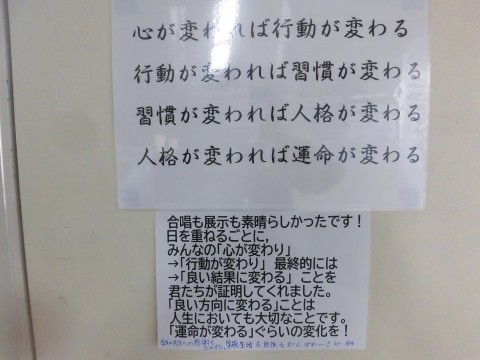 心が変われば行動が変わる
行動が変われば習慣が変わる
習慣が変われば人格が変わる
人格が変われば運命が変わる
合唱も展示も素晴らしかったです！
日を重ねるごとに，
みんなの「心が変わり」
→「行動が変わり」 最終的には
→「良い結果に変わる」 ことを
君たちが証明してくれました。
「良い方向に変わる」ことは
人生においても大切なことです。
「運命が変わる」ぐらいの変化を！